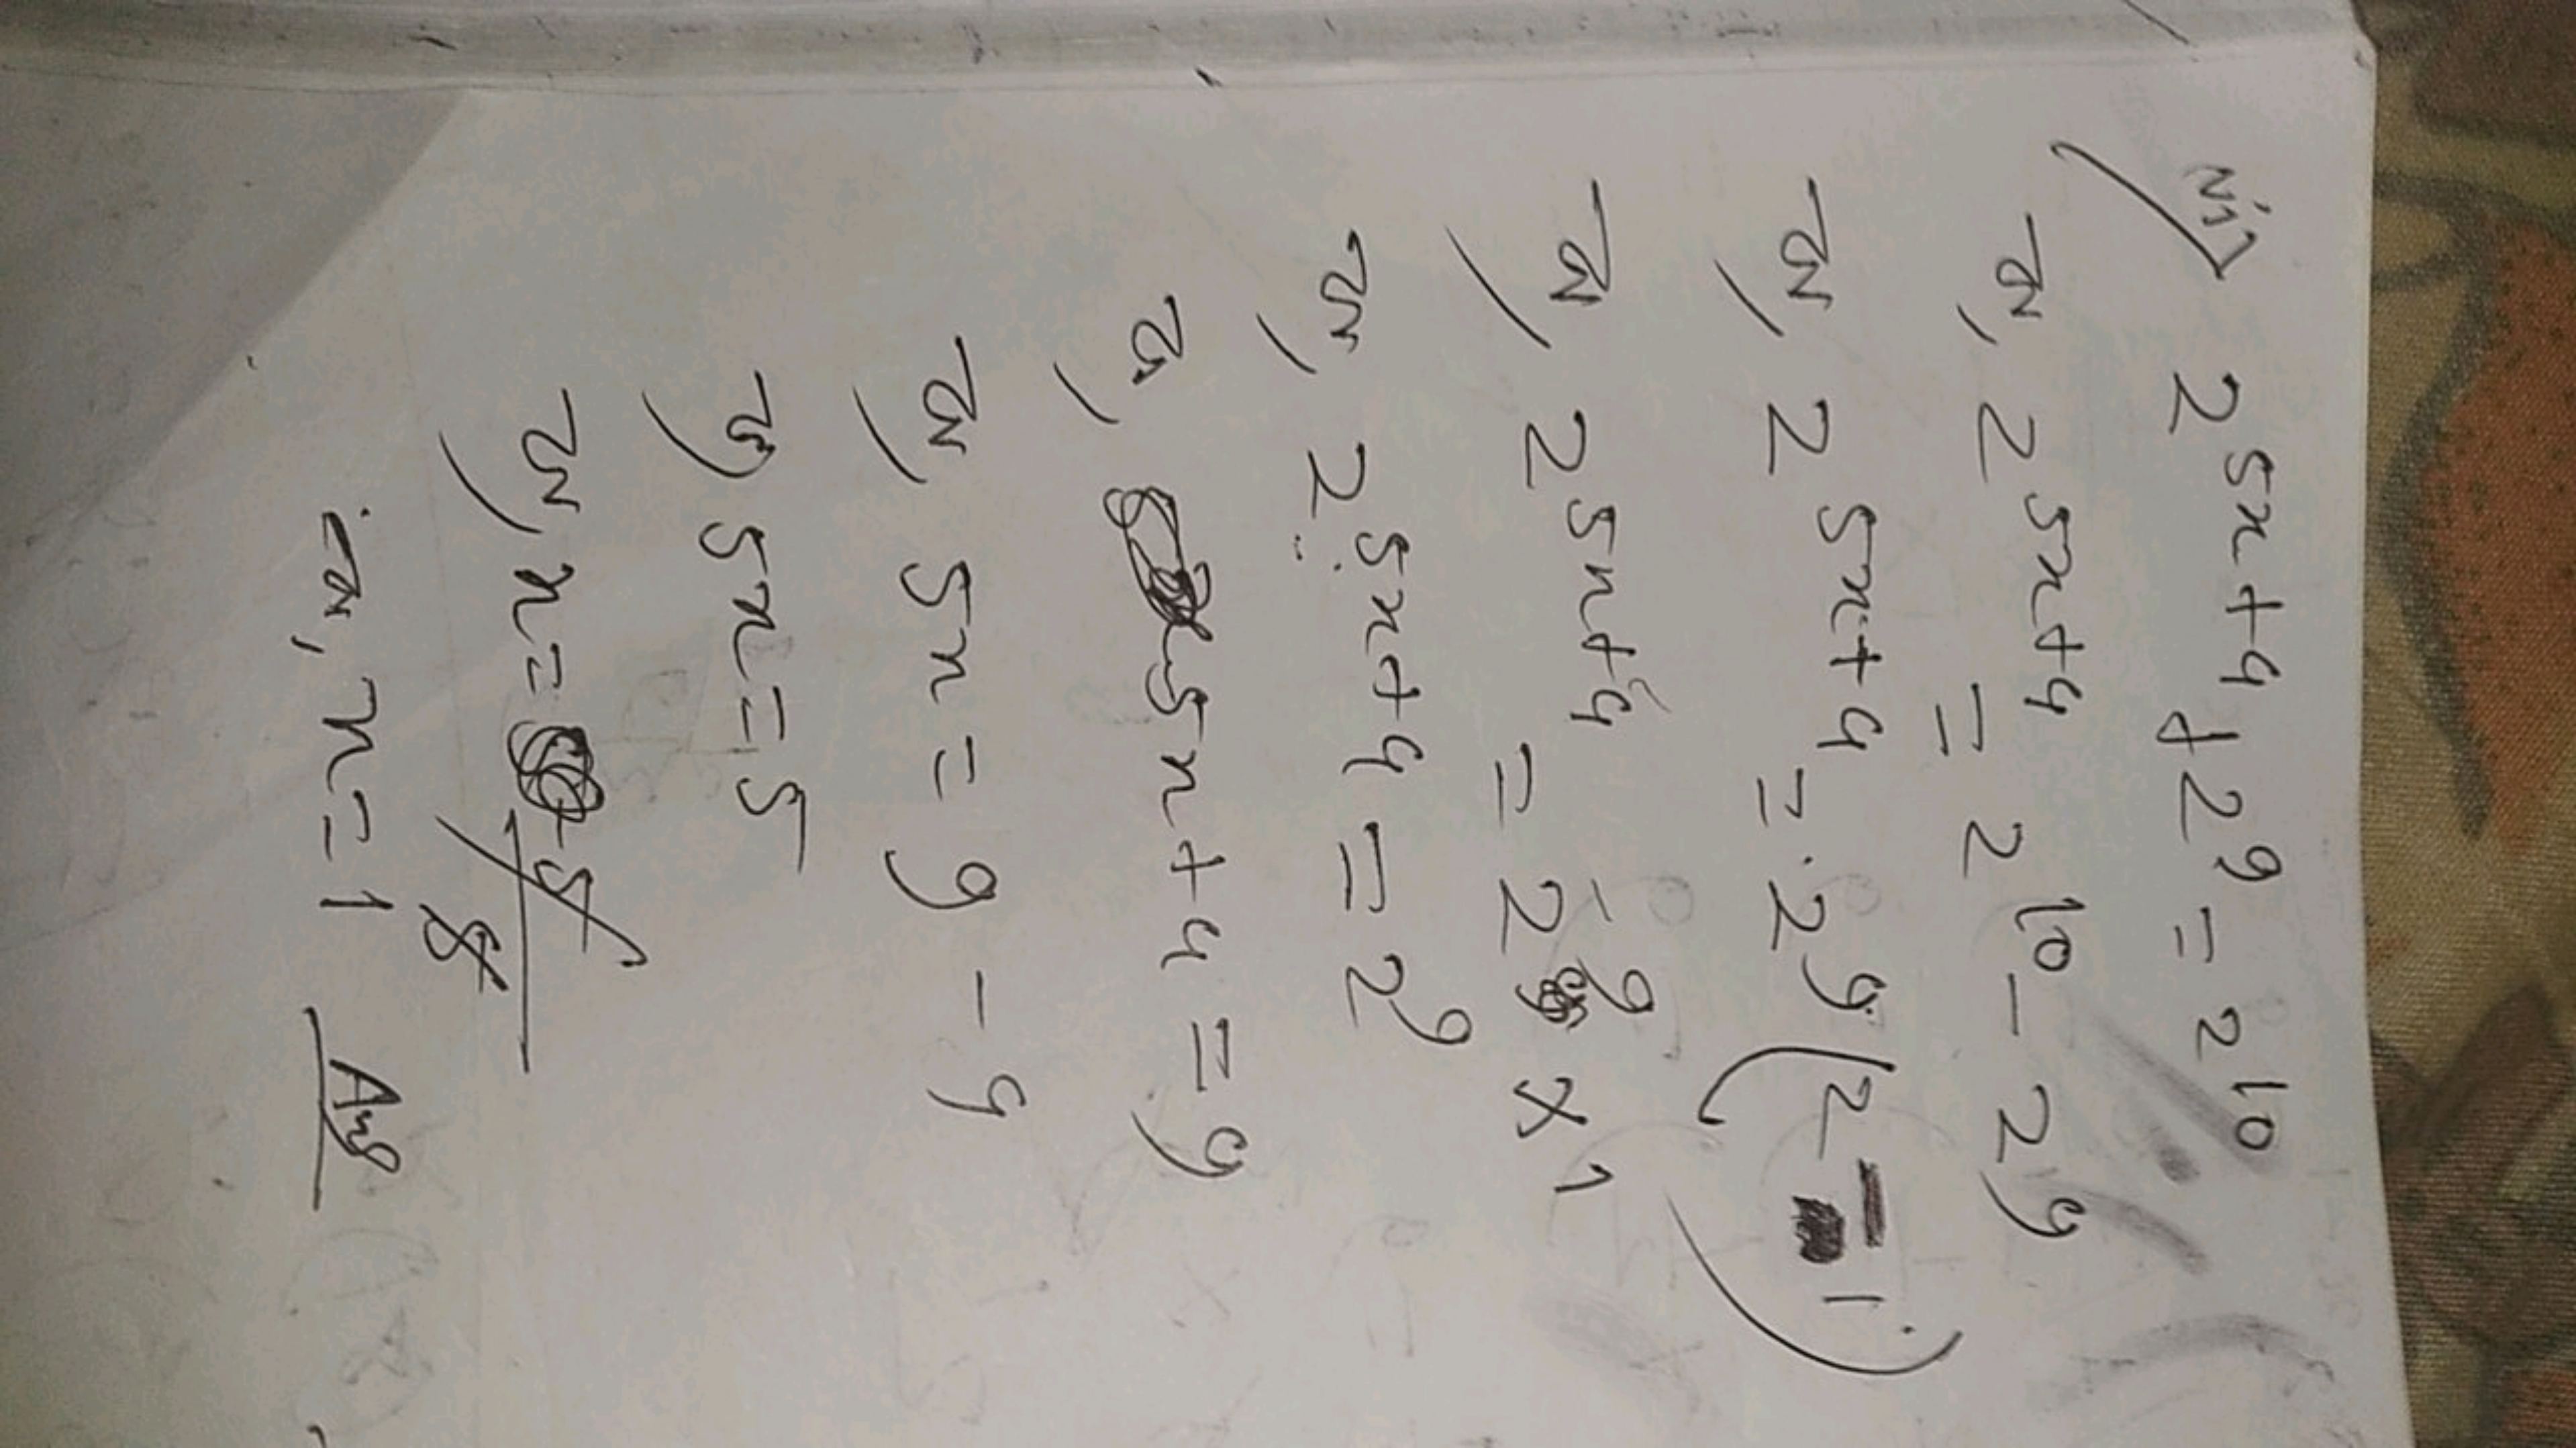 (iii) 2^{5x+4} + 2^9 = 2^{10}
বা, 2^{5x+4} = 2^{10} - 2^9
বা, 2^{5x+4} = 2^9 (2 - 1)
বা, 2^{5x+4} = 2^9 × 1
বা, 2^{5x+4} = 2^9
বা, 5x+4 = 9
বা, 5x = 9 - 4
বা, 5x = 5
বা, x = 5/5
বা, x = 1 Ans